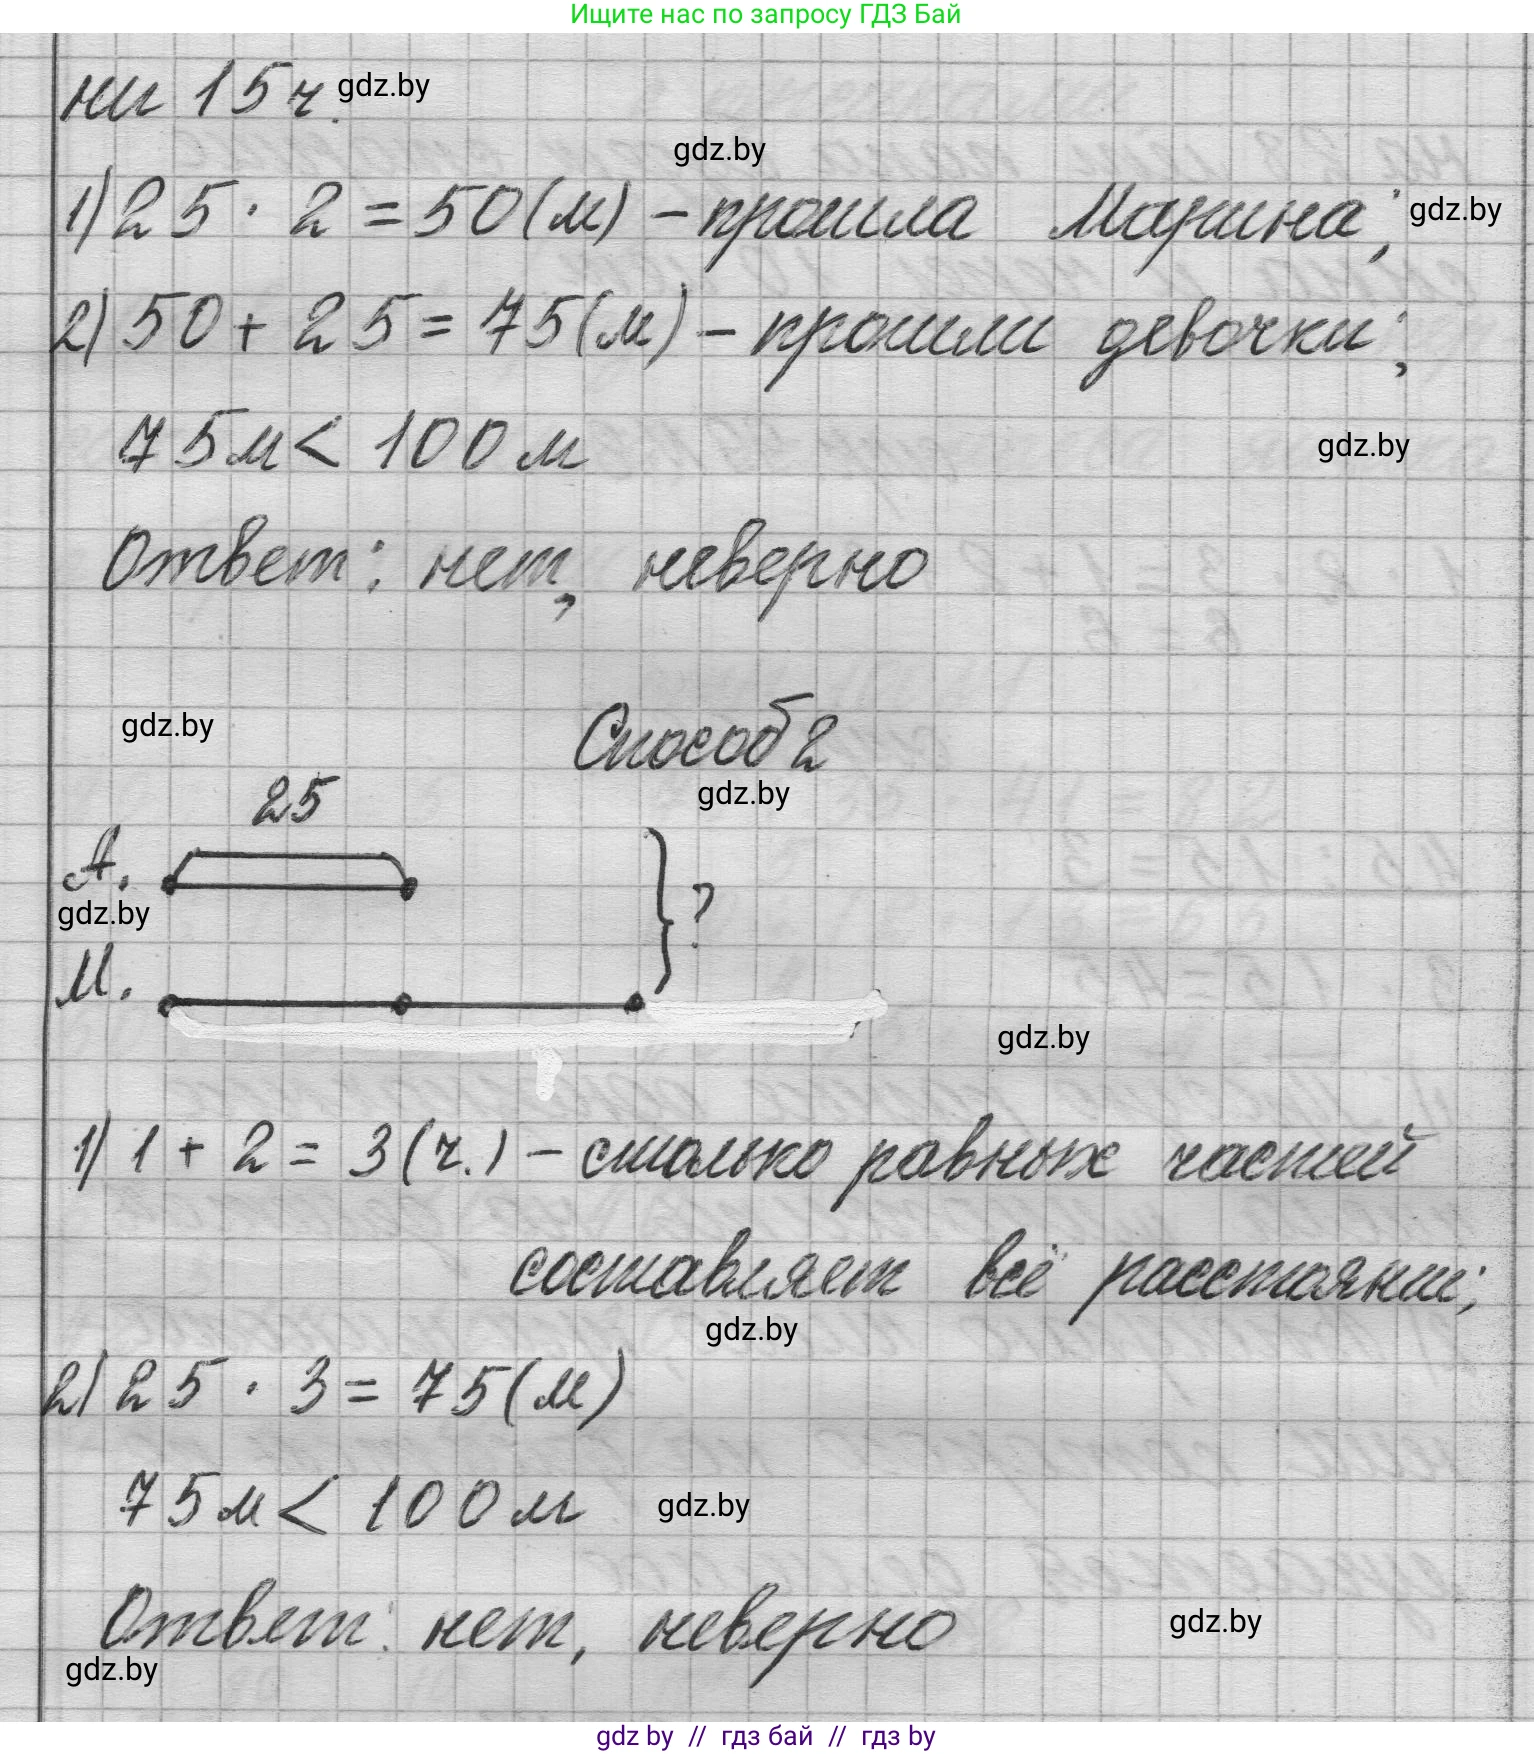 Ищите нас по запросу ГДЗ Бай
ни 15 ч. gdz.by
gdz.by
1) 25 · 2 = 50 (м) – прошла Марина; gdz.by
2) 50 + 25 = 75 (м) – прошли девочки;
75 м < 100 м gdz.by
Ответ: нет, неверно
gdz.by Способ 2
gdz.by
25
А.
gdz.by
} ?
М.
gdz.by
1) 1 + 2 = 3 (ч.) – столько равных частей
составляет всё расстояни;
gdz.by
2) 25 · 3 = 75 (м)
75 м < 100 м gdz.by
Ответ: нет, неверно gdz.by
gdz.by
gdz by // гдз бай // гдз by